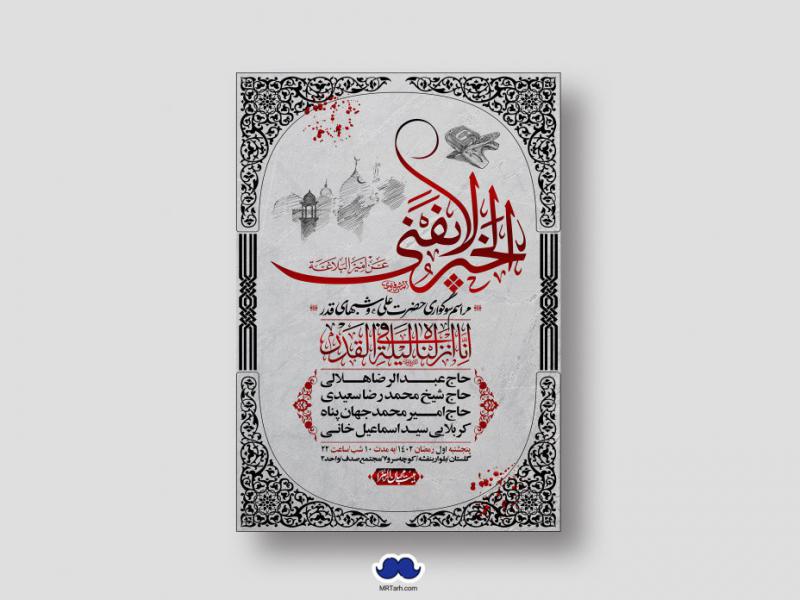 الحبر لا يفنى
عن أمير البلاغة
مراسم سوگواری حضرت علی و شبهای قدر
إنا أنزلناه في ليلة القدر
حاج عبدالرضا هلالی
حاج شیخ محمدرضا سعیدی
حاج امیر محمد جهان پناه
کربلایی سید اسماعیل خانی
پنجشنبه اول رمضان ۱۴۰۲/به مدت ۱۰ شب/ساعت ۲۲
گلستان/بلوار بنفشه/کوچه سرو ۷/مجتمع صدف/واحد ۲
MRTarh.com